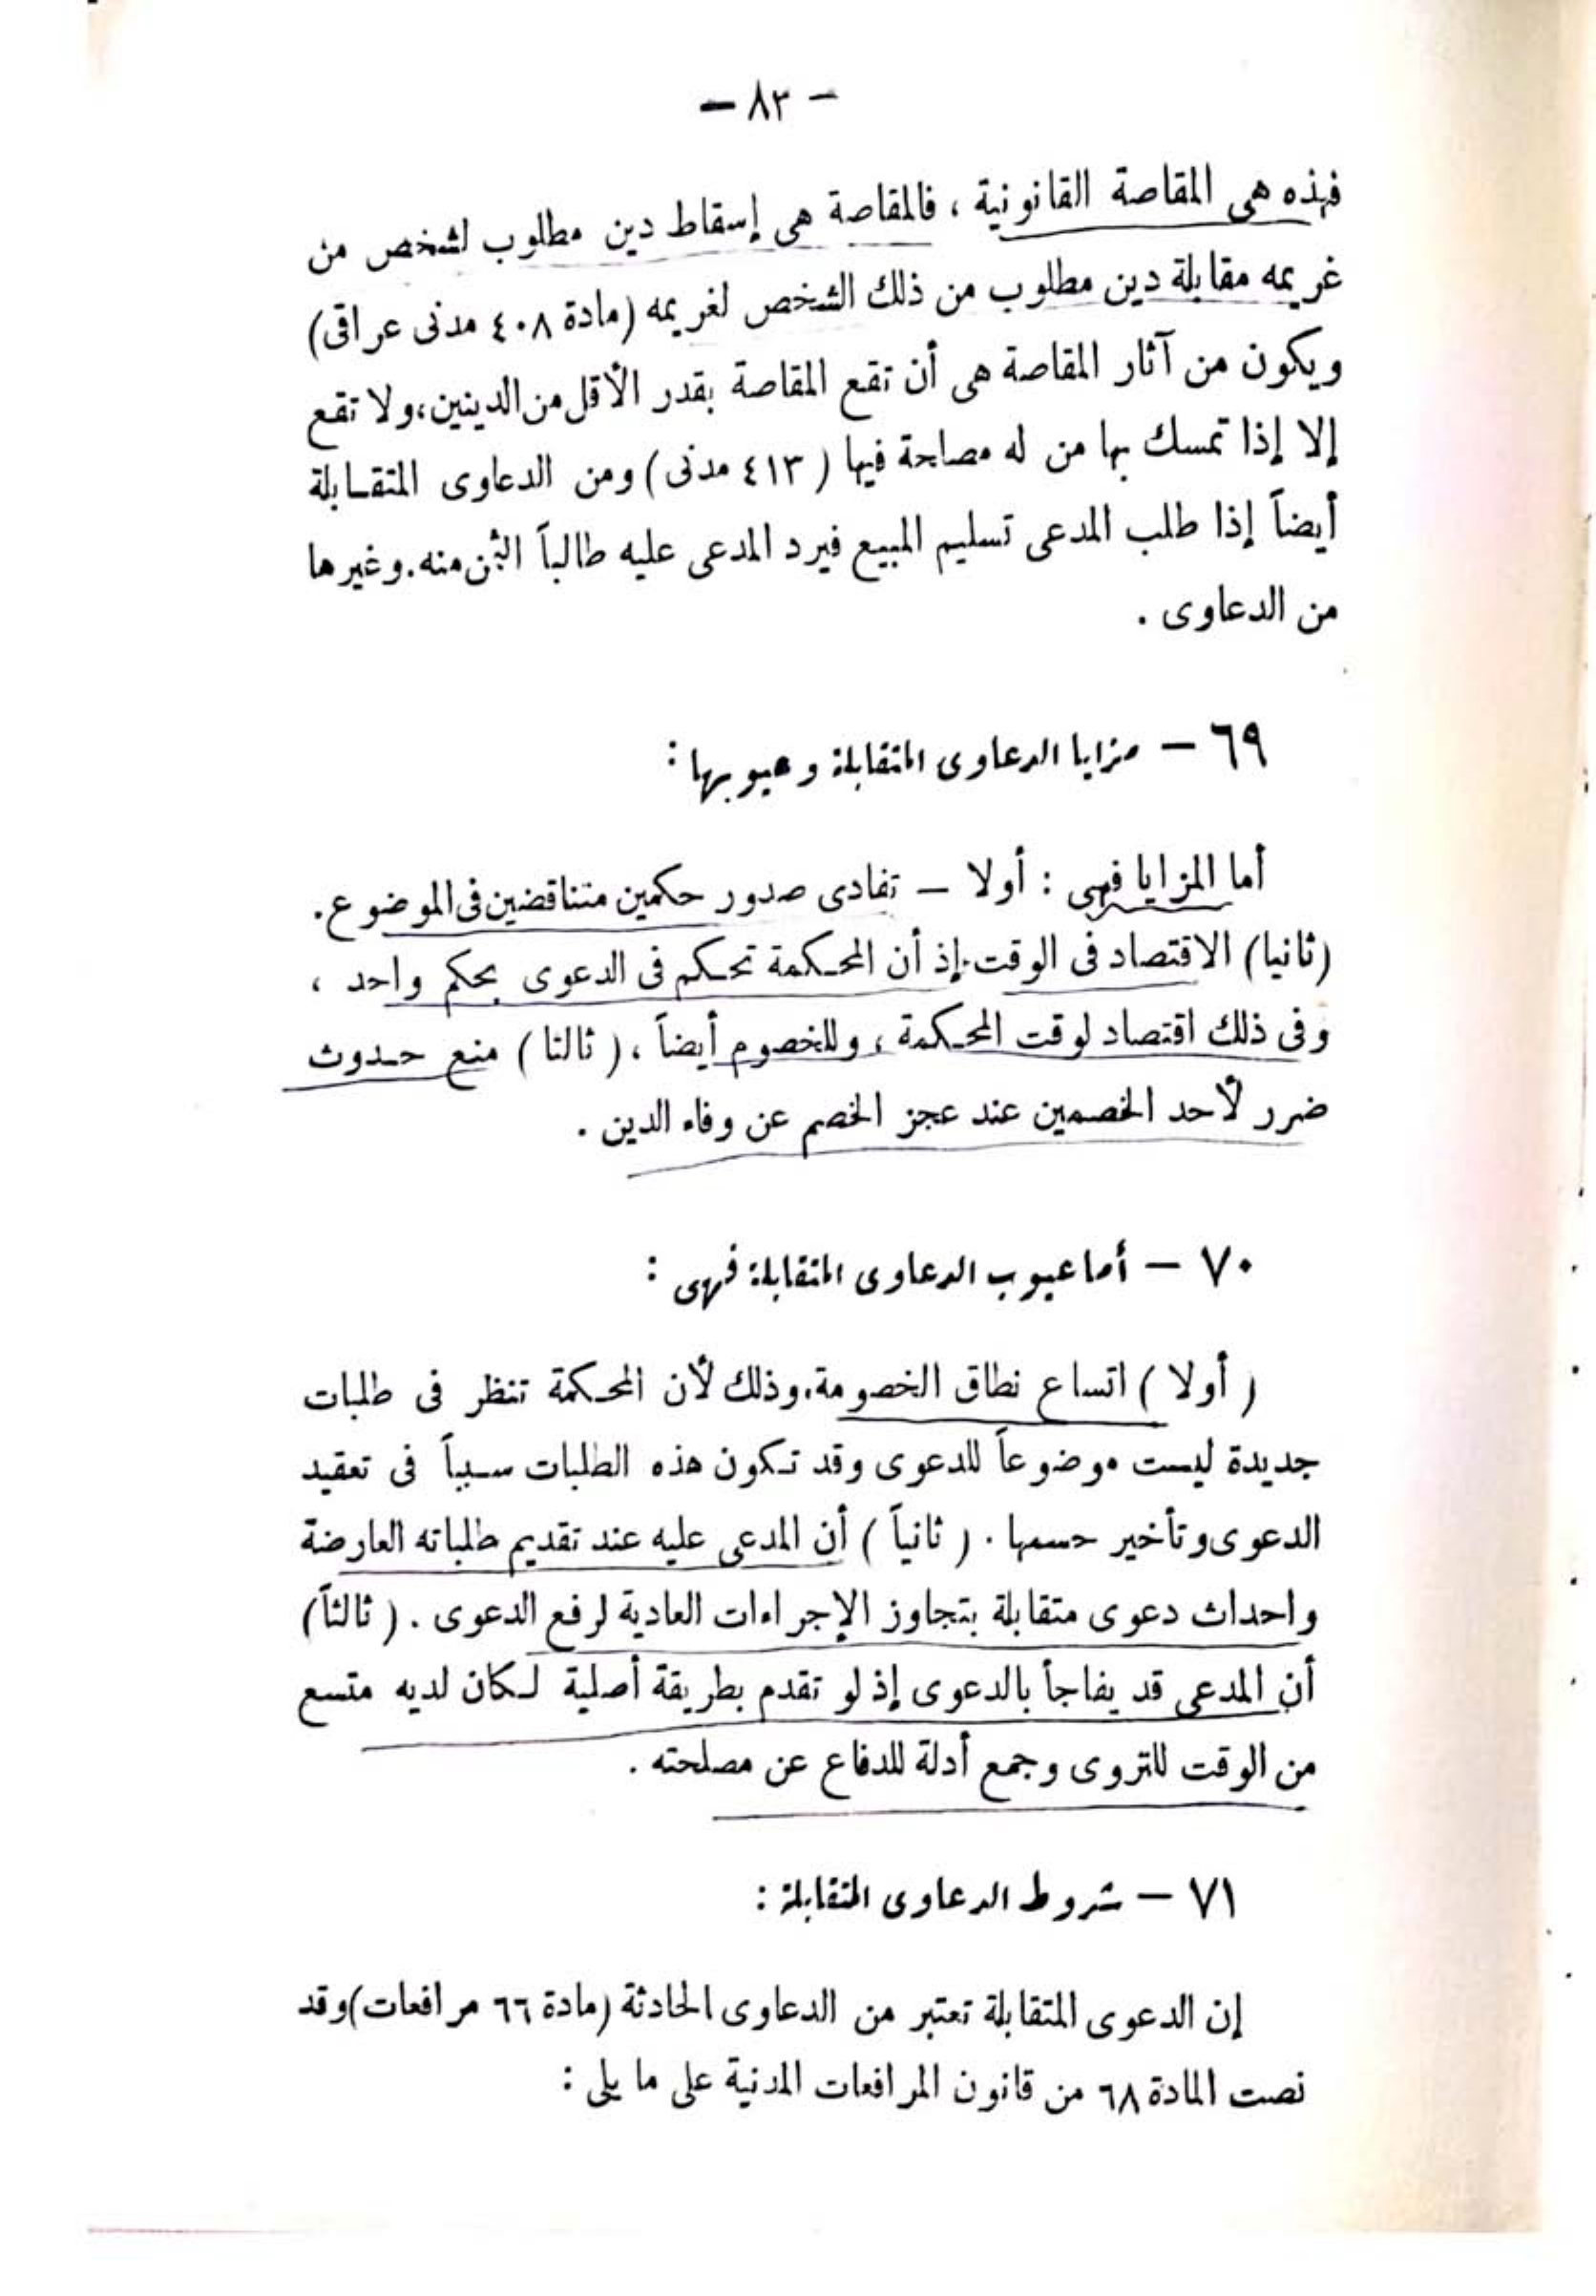 - ٨٣ -
فهذه هى المقاصة القانونية ، فالمقاصة هى إسقاط دين مطلوب لشخص من
غريمه مقابلة دين مطلوب من ذلك الشخص لغريمه (مادة ٤٠٨ مدنى عراقى)
ويكون من آثار المقاصة هى أن تقع المقاصة بقدر الأقل من الدينين، ولا تقع
إلا إذا تمسك بها من له مصلحة فيها ( ٤١٣ مدنى ) ومن الدعاوى المتقابلة
أيضاً إذا طلب المدعى تسليم المبيع فيرد المدعى عليه طالباً الثمن منه . وغيرها
من الدعاوى .
٦٩ - مزايا الدعاوى المتقابلة وعيوبها :
أما المزايا فهى : أولا - تفادى صدور حكمين متناقضين فى الموضوع .
(ثانيا) الاقتصاد فى الوقت . إذ أن المحكمة تحكم فى الدعوى بحكم واحد ،
وفى ذلك اقتصاد لوقت المحكمة ، وللخصوم أيضاً ، ( ثالثا ) منع حدوث
ضرر لأحد الخصمين عند عجز الخصم عن وفاء الدين .
٧٠ - أما عيوب الدعاوى المتقابلة فهى :
( أولا ) اتساع نطاق الخصومة، وذلك لأن المحكمة تنظر فى طلبات
جديدة ليست موضوعاً للدعوى وقد تكون هذه الطلبات سبباً فى تعقيد
الدعوى وتأخير حسمها . ( ثانياً ) أن المدعى عليه عند تقديم طلباته العارضة
واحداث دعوى متقابلة يتجاوز الإجراءات العادية لرفع الدعوى . ( ثالثاً )
أن المدعى قد يفاجأ بالدعوى إذ لو تقدم بطريقة أصلية لكان لديه متسع
من الوقت للتروى وجمع أدلة للدفاع عن مصلحته .
٧١ - شروط الدعاوى المتقابلة :
إن الدعوى المتقابلة تعتبر من الدعاوى الحادثة (مادة ٦٦ مرافعات) وقد
نصت المادة ٦٨ من قانون المرافعات المدنية على ما يلى :